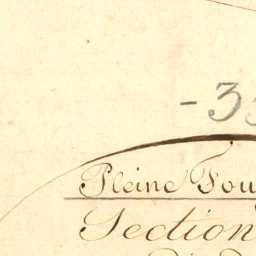 -3
Pleine Fou
Section